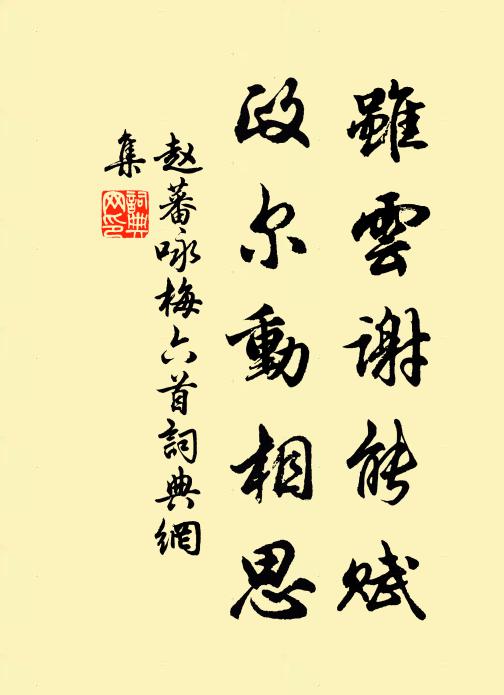 雖雲謝能賦
政尔動相思
赵蕃咏梅六首詞典網
集
詞典網印